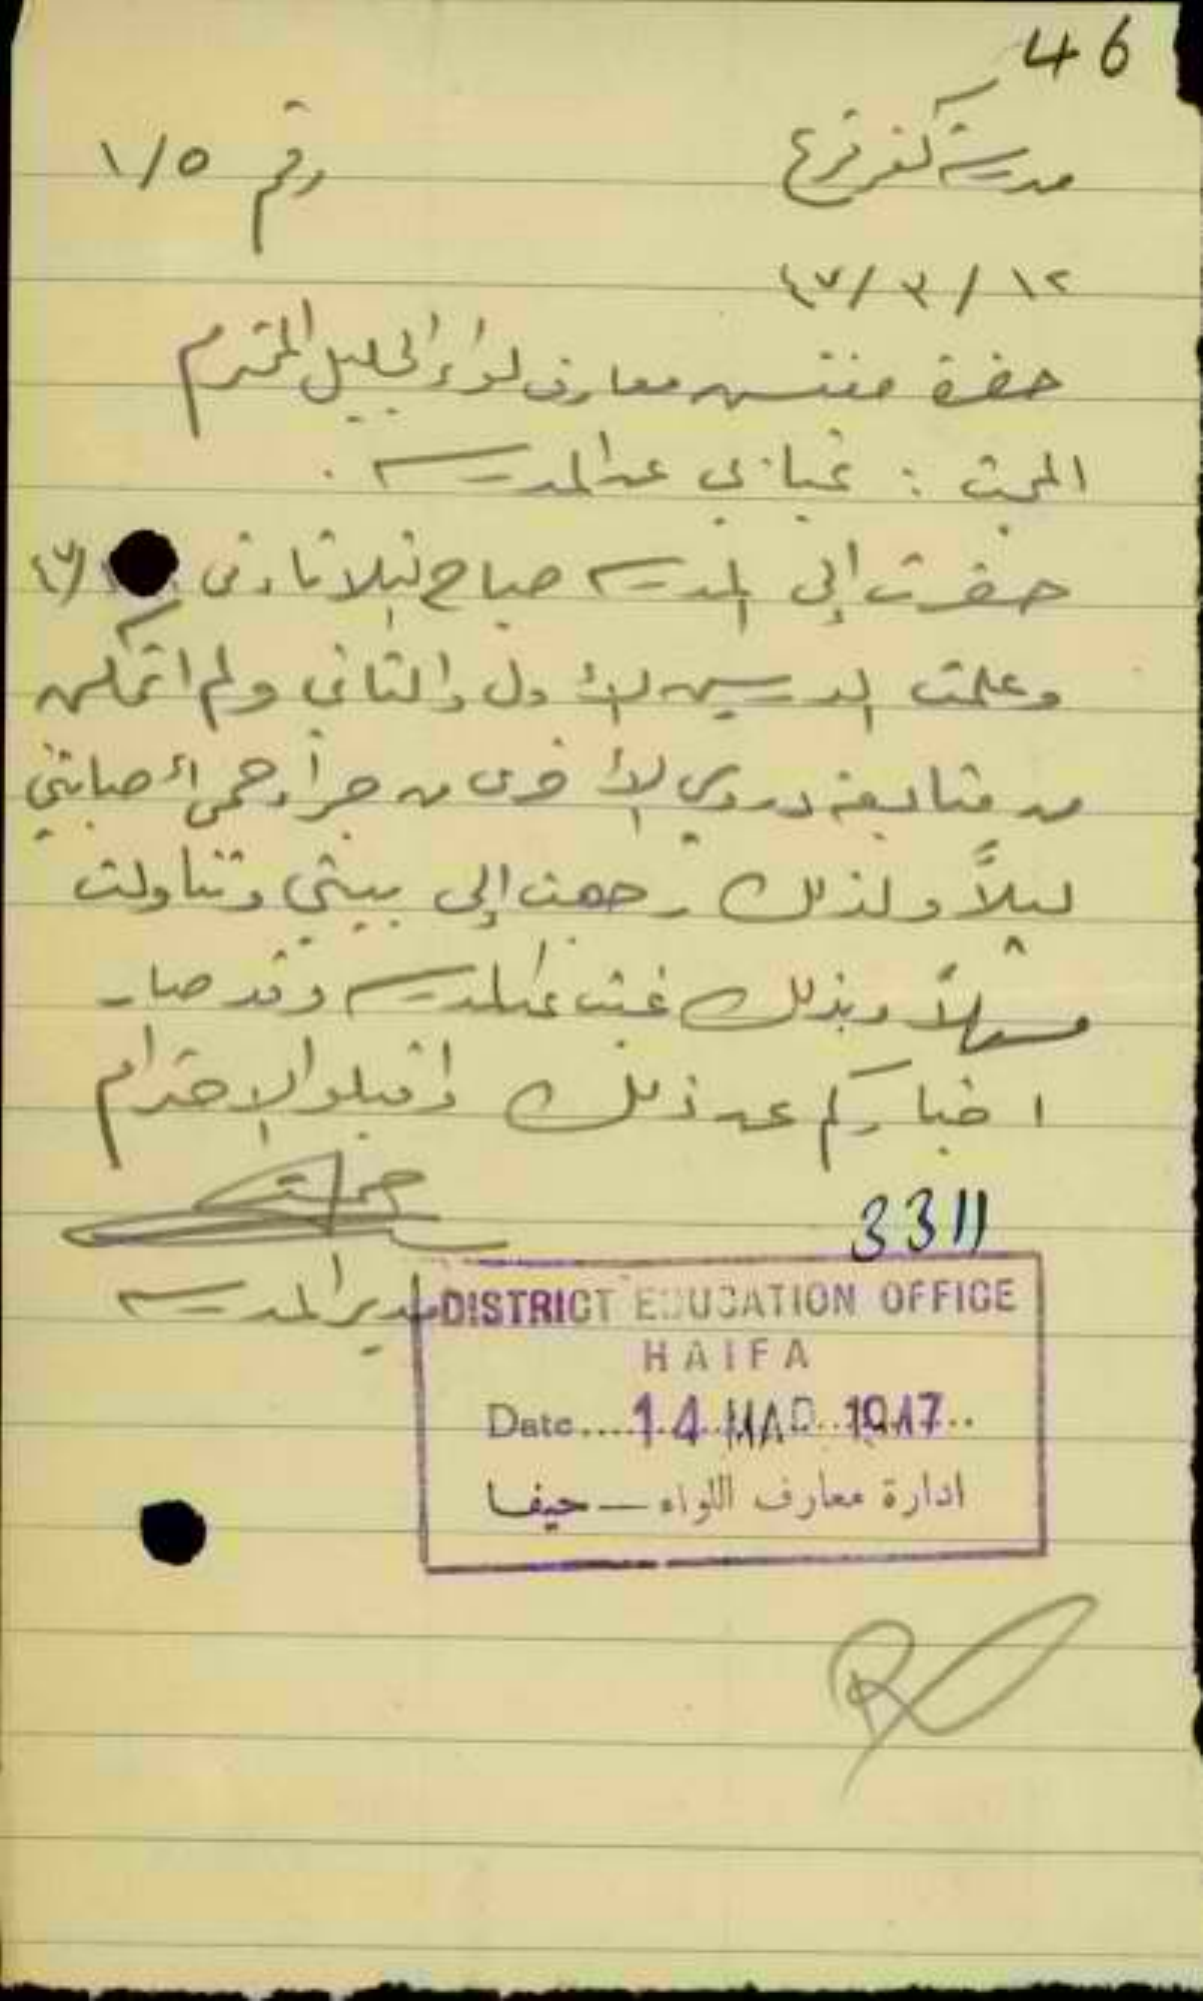 46
مدرسة كفر قرع
رقم ١/٥
١٢/٣/٤٧
حضرة مفتش معارف لواء الجليل المحترم
البحث : غيابي عن المدرسة .
حضرت إلى المدرسة صباح الثلاثاء في /٤٧
وعلمت الدرسين الأول والثاني ولم اتمكن
من متابعة دروسي الأخرى من جراء حمى أصابتني
ليلاً ولذلك رجعت إلى بيتي وتناولت
مسهلاً وبذلك غبت عن المدرسة وقد صار
اخباركم عن ذلك واقبلوا الاحترام
مدير المدرسة
3311
DISTRICT EDUCATION OFFICE
HAIFA
Date....14 MAR 1947..
ادارة معارف اللواء — حيفا